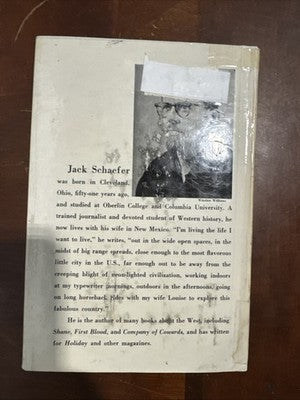 Winston Williams
Jack Schaefer
was born in Cleveland,
Ohio, fifty-one years ago,
and studied at Oberlin College and Columbia University. A
trained journalist and devoted student of Western history, he
now lives with his wife in New Mexico. "I'm living the life I
want to live," he writes, "out in the wide open spaces, in the
midst of big range spreads, close enough to the most flavorous
little city in the U.S., far enough out to be away from the
creeping blight of neon-lighted civilization, working indoors
at my typewriter mornings, outdoors in the afternoons, going
on long horseback rides with my wife Louise to explore this
fabulous country."
He is the author of many books about the West, including
Shane, First Blood, and Company of Cowards, and has written
for Holiday and other magazines.